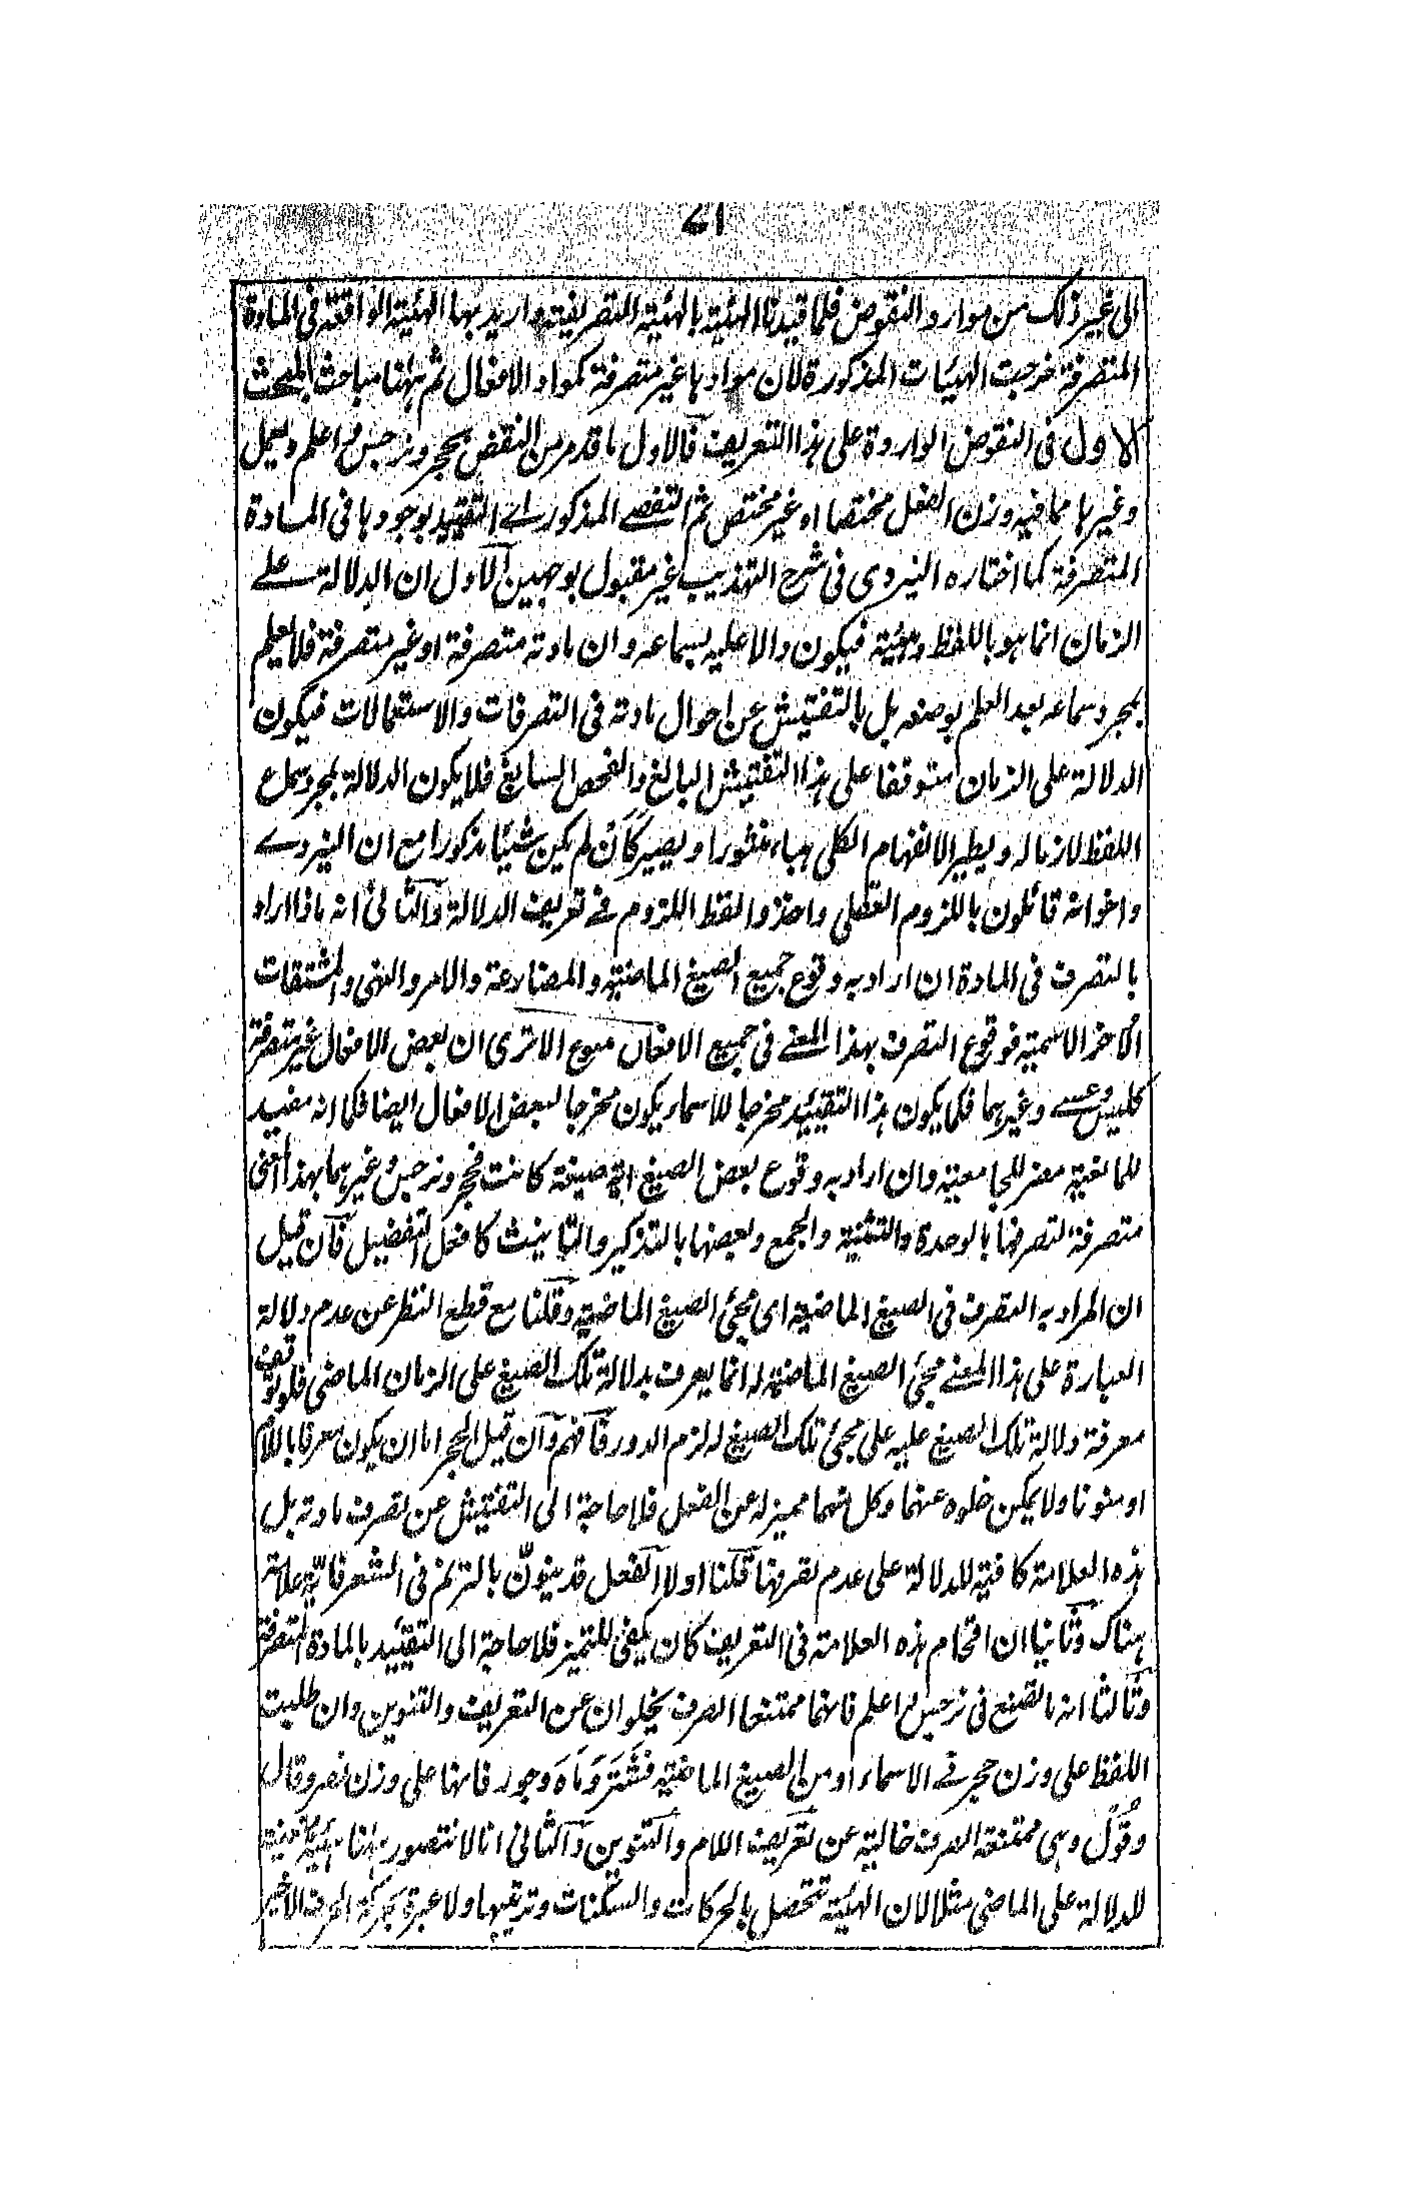 الى غير ذلك من موارد النقوض فلما قيدنا الهئية بالهئية التصريفية واريد بها الهئية الواقعة فى المادة
المتصرفة خرجت الهئيات المذكورة لان موادها غير متصرفة كمواد الافعال ثم ههنا مباحث المبحث
الاول فى النقوض الواردة على هذا التعريف فالاول ما قد مر من النقض بحجر ونرجس واعلم ويعمل
وغيرها مما فيه وزن الفعل مختصا او غير مختص ثم التفصى المذكور اى التقييد بوجودها فى المادة
المتصرفة كما اختاره اليزدى فى شرح التهذيب غير مقبول بوجهين الاول ان الدلالة على
الزمان انما هو باللفظ وهيئته فيكون دالا عليه بسماعه وان مادته متصرفة او غير متصرفة فلا يعلم
بمجرد سماعه بعد العلم بوضعه بل بالتفتيش عن احوال مادته فى التصرفات والاستعمالات فيكون
الدلالة على الزمان متوقفا على هذا التفتيش البالغ والفحص السابغ فلا يكون الدلالة بمجرد سماع
اللفظ لازما له ويطير الانفهام الكلى هباء منثورا ويصير كأن لم يكن شيئا مذكورا مع ان اليزدى
واخوانه قائلون باللزوم العقلى واخذوا لفظ اللزوم فى تعريف الدلالة والثانى انه ماذا اراد
بالتصرف فى المادة ان اراد به وقوع جميع الصيغ الماضية والمضارعة والامر والنهى والمشتقات
الاخر الاسمية فوقوع التصرف بهذا المعنى فى جميع الافعال ممنوع الا ترى ان بعض الافعال غير متصرفة
كليس وعسى وغيرهما فكما يكون هذا التقييد مخرجا للاسماء يكون مخرجا لبعض الافعال ايضا فكما انه مفيد
للمانعية مضر للجامعية وان اراد به وقوع بعض الصيغ اية صيغة كانت فحجر ونرجس وغيرهما بهذا المعنى
متصرفة لتصرفها بالوحدة والتثنية والجمع وبعضها بالتذكير والتانيث كافعل التفضيل فان قيل
ان المراد به التصرف فى الصيغ الماضية اى مجئ الصيغ الماضية وقلنا مع قطع النظر عن عدم دلالة
العبارة على هذا المعنى مجئ الصيغ الماضية له انما يعرف بدلالة تلك الصيغ على الزمان الماضى فلو توقف
معرفة دلالة تلك الصيغ عليه على مجئ تلك الصيغ له لزم الدور فافهم وان قيل الحجر اما ان يكون معرفا باللام
او منونا ولا يمكن خلوه عنهما وكل منهما مميز له عن الفعل فلا حاجة الى التفتيش عن تصرف مادته بل
هذه العلامة كافية للدلالة على عدم تصرفها قلنا اولا الفعل قد ينون بالترنم فى الشعر فاية علامة
هناك وثانيا ان اقحام هذه العلامة فى التعريف كان يكفى للتميز فلا حاجة الى التقييد بالمادة المتصرفة
وثالثا انه ما تصنع فى نرجس واعلم فانهما ممتنعا الصرف يخلوان عن التعريف والتنوين وان طلبت
اللفظ على وزن حجر فى الاسماء او من الصيغ الماضية فشتر وماه وجور فانها على وزن نصر وقال
وقول وهى ممتنعة الصرف خالية عن تعريف اللام والتنوين والثانى انا لا نتصور ههنا هيئة معينة
للدلالة على الماضى مثلا لان الهئية تتحصل بالحركات والسكنات وترتيبها ولا عبرة بحركة الحرف الاخير